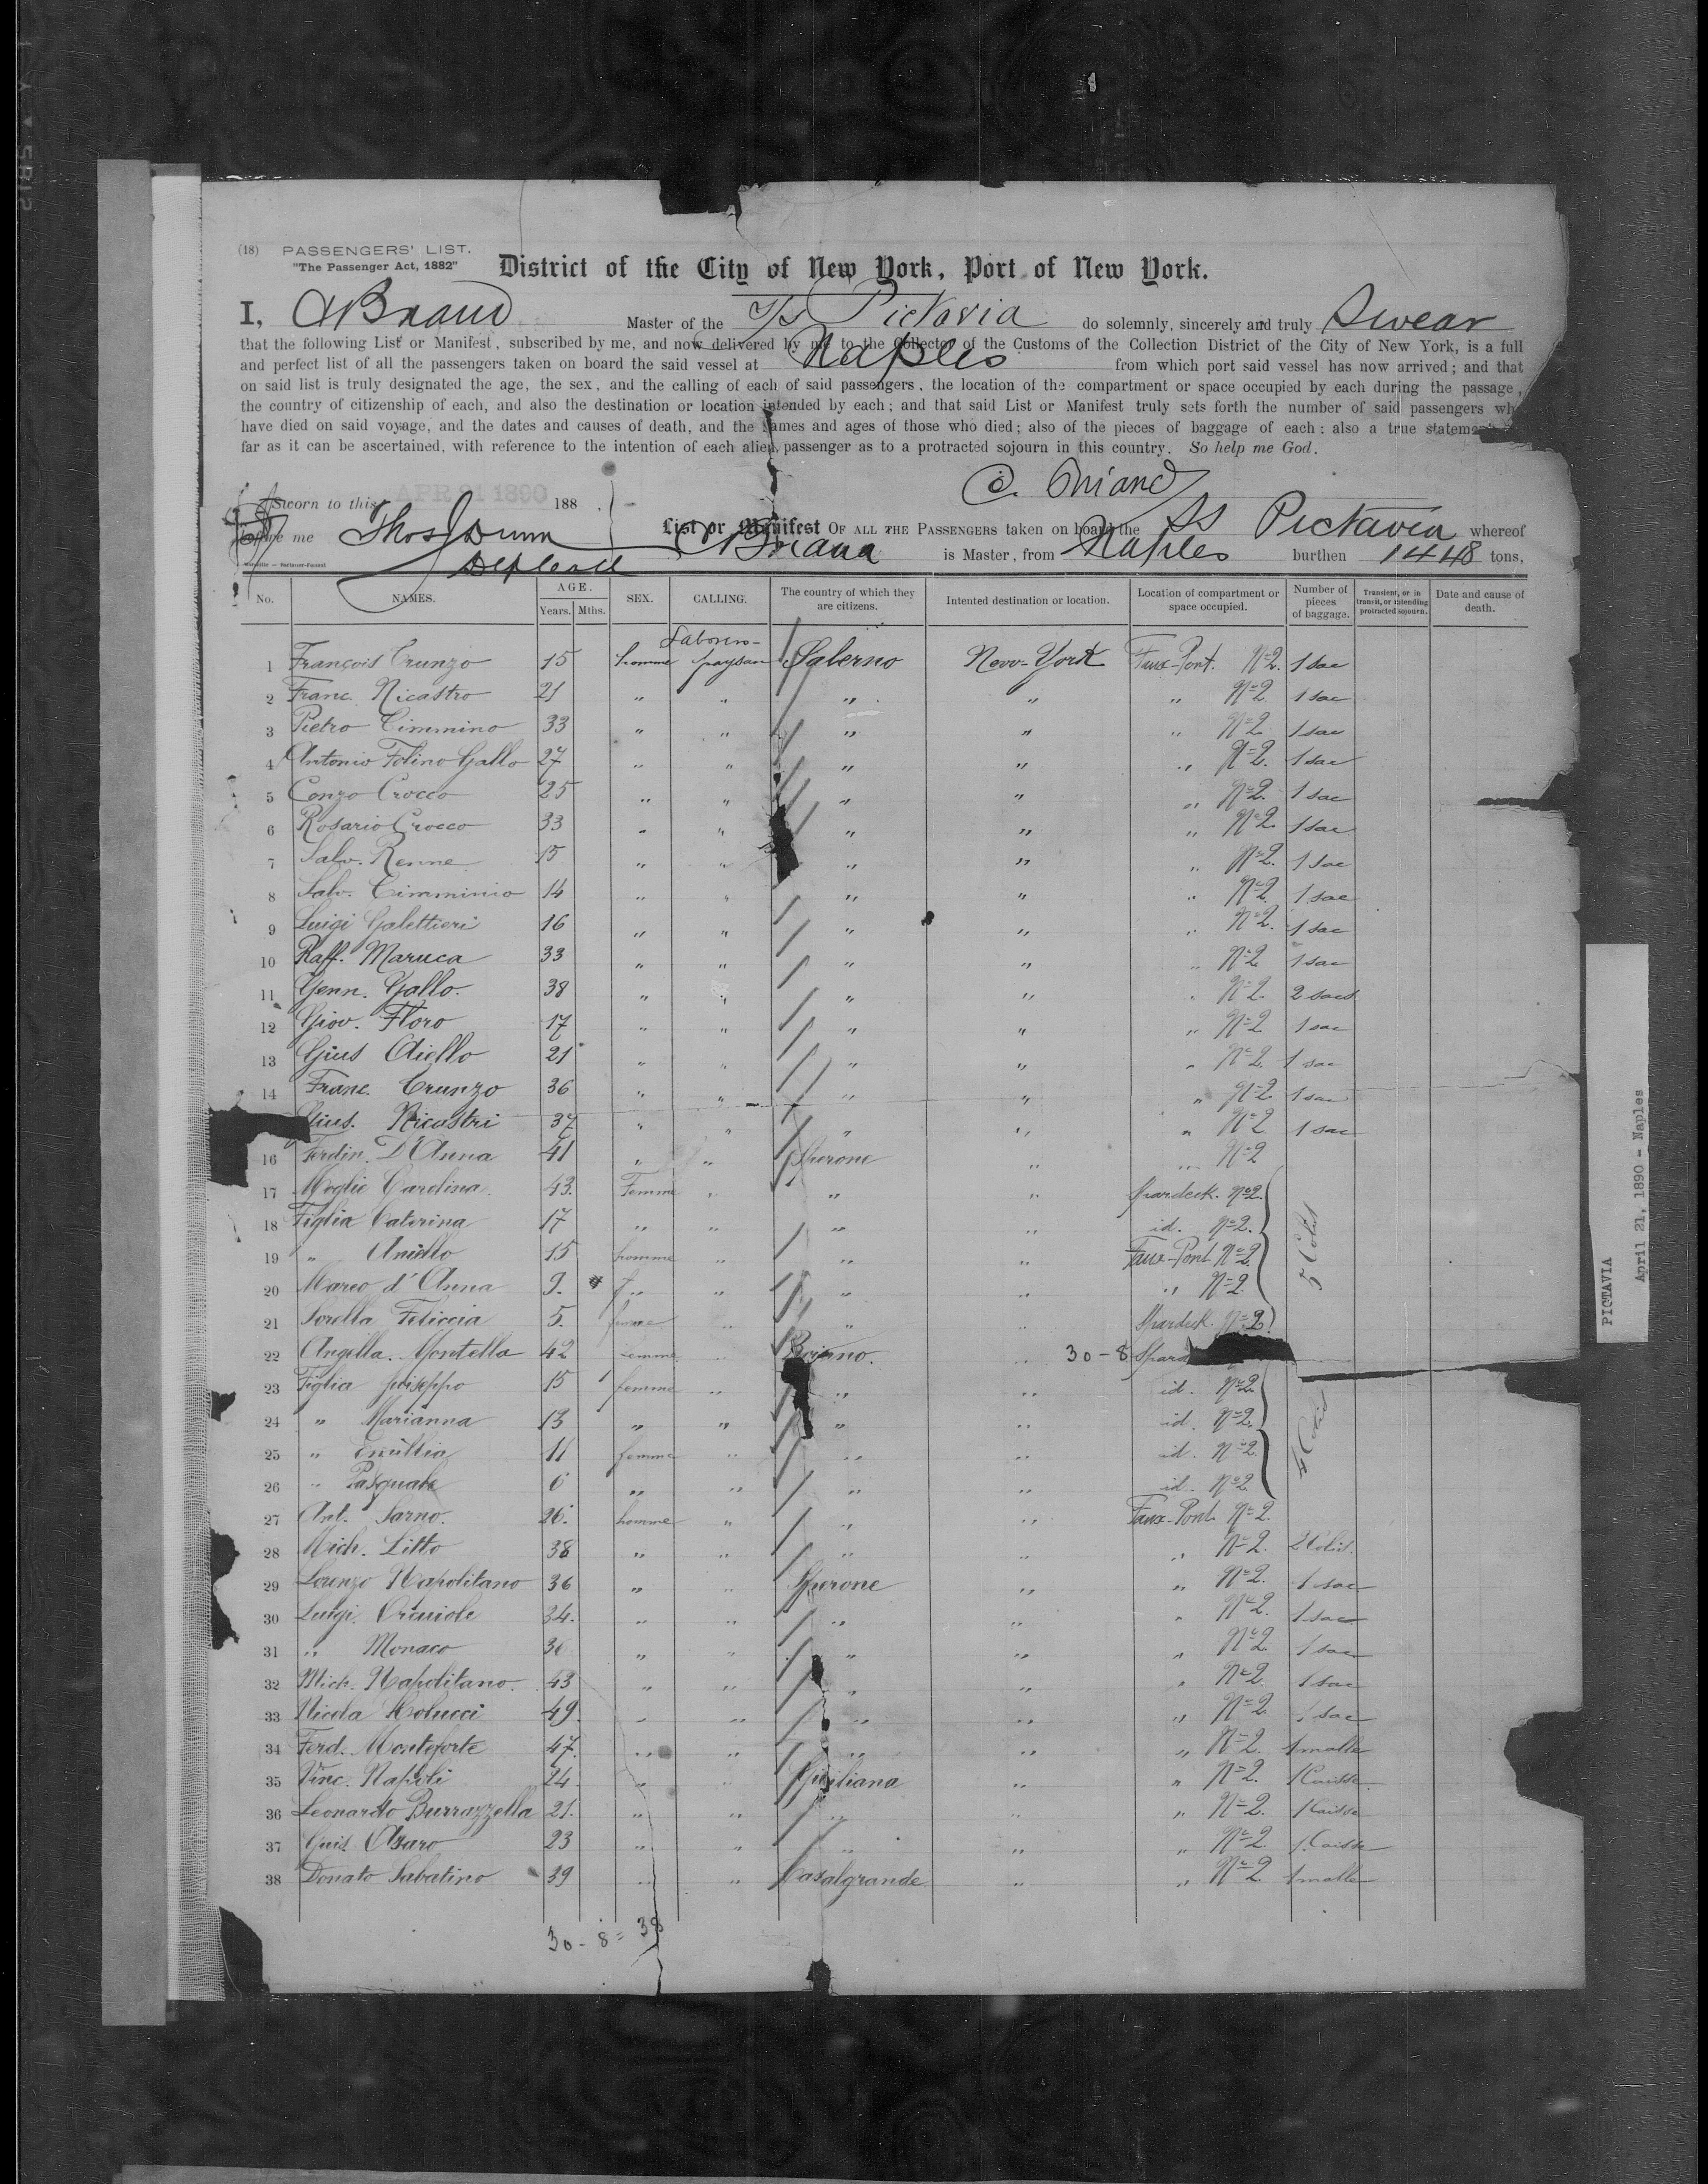 (18) PASSENGERS' LIST.
"The Passenger Act, 1882"
District of the City of New York, Port of New York.
I, Master of the S/S Pictavia do solemnly, sincerely and truly Swear
that the following List or Manifest, subscribed by me, and now delivered by me to the Collector of the Customs of the Collection District of the City of New York, is a full
and perfect list of all the passengers taken on board the said vessel at Naples from which port said vessel has now arrived; and that
on said list is truly designated the age, the sex, and the calling of each of said passengers, the location of the compartment or space occupied by each during the passage,
the country of citizenship of each, and also the destination or location intended by each; and that said List or Manifest truly sets forth the number of said passengers wh
have died on said voyage, and the dates and causes of death, and the names and ages of those who died; also of the pieces of baggage of each: also a true statemen
far as it can be ascertained, with reference to the intention of each alien passenger as to a protracted sojourn in this country. So help me God.
Sworn to this APR 21 1890 188
me Thos Dunn
List or Manifest OF ALL THE PASSENGERS taken on board the SS Pictavia whereof
is Master, from Naples burthen 1448 tons,
No. NAMES. AGE. Years. Mths. SEX. CALLING. The country of which they are citizens. Intented destination or location. Location of compartment or space occupied. Number of pieces of baggage. Transient, or in transit, or intending protracted sojourn. Date and cause of death.
1 François Crunzo 15 homme paysan Salerno New-York Faux-Pont. Nº2. 1 sac
2 Franc. Nicastro 21 " " " " " Nº2. 1 sac
3 Pietro Cimmino 33 " " " " " Nº2 1 sac
4 Antonio Folino Gallo 27 " " " " " Nº2. 1 sac
5 Conzo Crocco 25 " " " " " Nº2. 1 sac
6 Rosario Crocco 33 " " " " " Nº2. 1 sac
7 Salv. Renne 15 " " " " " Nº2. 1 sac
8 Salv. Cimminio 14 " " " " " Nº2. 1 sac
9 Luigi Galettieri 16 " " " " " Nº2. 1 sac
10 Raff. Maruca 33 " " " " " Nº2 1 sac
11 Genn. Gallo. 38 " " " " " Nº2. 2 sacs
12 Giov. Floro 17 " " " " " Nº2 1 sac
13 Gius Aiello 21 " " " " " Nº2 1 sac
14 Franc. Crunzo 36 " " " " " Nº2. 1 sac
Gius. Nicastri 37 " " " " " Nº2 1 sac
16 Ferdin. D'Anna 41 " " Sperone " " Nº2
17 Moglie Carolina 43. Femme " " " Spardeck. Nº2.
18 Figlia Caterina 17 " " " " id. Nº2.
19 " Aniello 15 homme " " Faux-Pont Nº2
20 Marco d'Anna 9. " " " " " Nº2.
21 Sorella Feliccia 5. " " " Spardeck. Nº2
5 Colis
22 Angella. Montella 42 Femme " " 30-8 Spard
23 Figlia Guiseppo 15 femme " " " id. Nº2
24 " Marianna 13 " " " " id. Nº2.
25 " Emillia 11 femme " " " id. Nº2.
26 " Pasquale 6 " " " " id. Nº2
4 Colis
27 Ant. Sarno. 26. homme " " " Faux-Pont Nº2.
28 Mich. Litto 38 " " " " " Nº2. 2 Colis.
29 Lorenzo Napolitano 36 " " Sperone " " Nº2. 1 sac
30 Luigi 34. " " " " " Nº2. 1 sac
31 " Monaco 30 " " " " " Nº2 1 sac
32 Mich. Napolitano. 43 " " " " " Nº2 1 sac
33 Nicola 49. " " " " " Nº2. 1 sac
34 Ferd. Monteforte 47. " " " " " Nº2. 1 malle
35 Vinc. Napoli 24. " " Giuliana " " Nº2. 1 Caisse
36 Leonardo Burrazzella 21. " " " " " Nº2. 1 Caisse
37 Guis. Asaro 23 " " " " " Nº2 1 Caisse
38 Donato Sabatino 39 " " Casalgrande " " Nº2 1 malle
30-8=38
PICTAVIA
April 21, 1890 - Naples